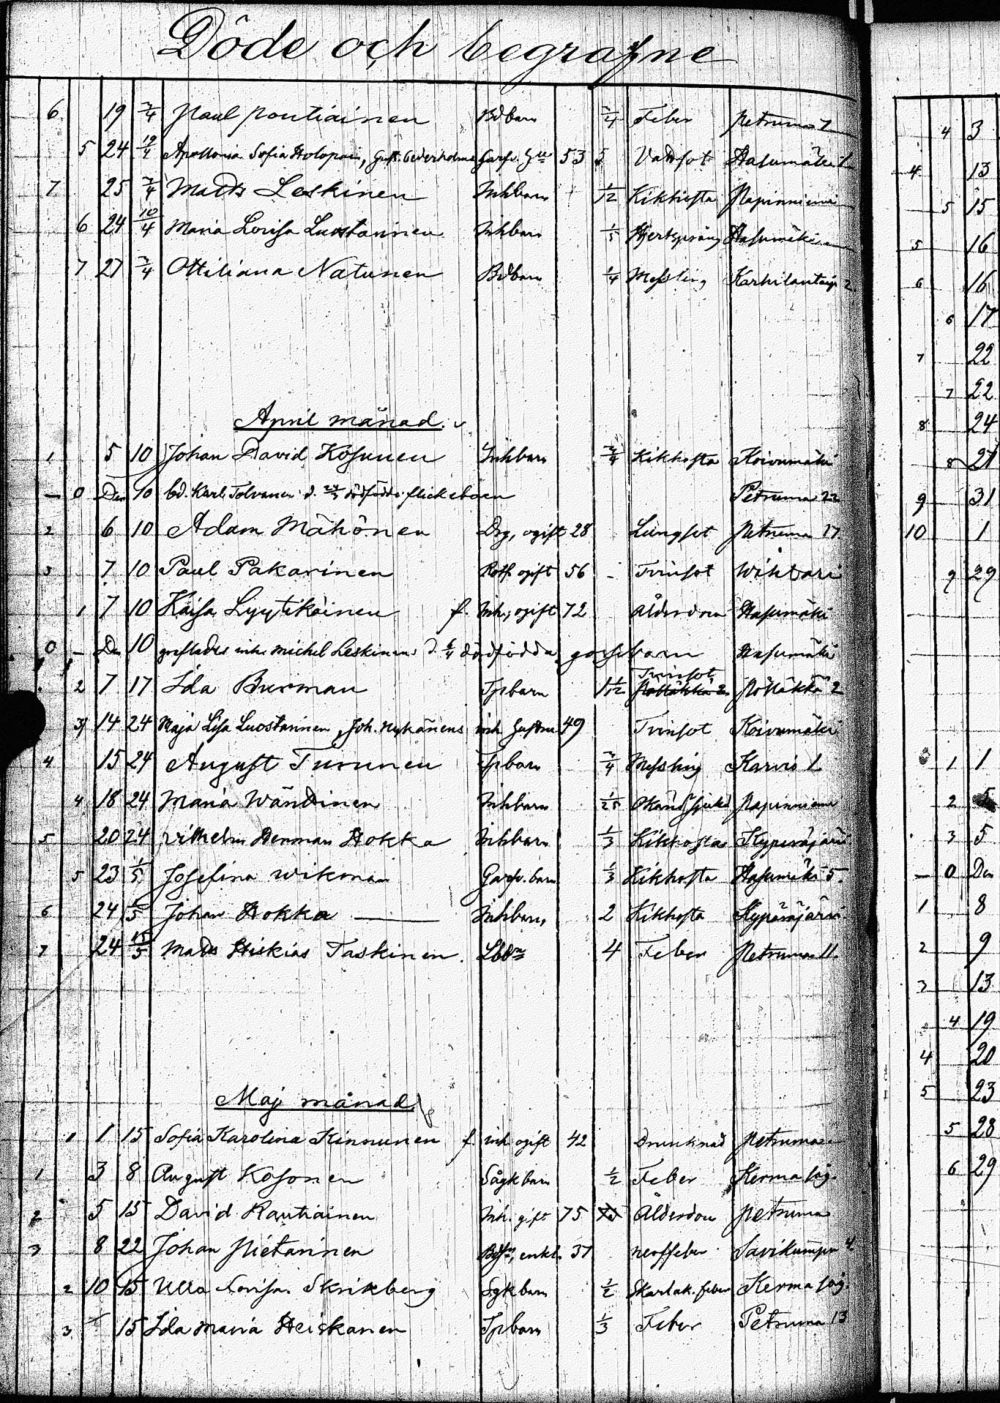 Döde och begrafne
6 19 3/4 Paul Pontiainen Bdbarn 3/4 Feber Petruma 7
5 24 19/4 Apollonia Sofia Holopain, Gust. Cederholms 53 5 Vattsot Hasumäki 1
7 25 3/4 Matts Leskinen Inhbarn 1/12 Kikhosta Papinniemi
6 24 10/4 Maria Lovisa Luostarinen Inhbarn 1/5 Hasumäki
7 27 3/4 Ottiliana Natunen Bdbarn 1/4 Messling Karhilantaip. 2
April månad.
1 5 10 Johan David Kosunen Inhbarn 3/4 Kikhosta Koivumäki
0 Den 10 bd. Karl Tolvanen d. dödfödda flickebarn Petruma 22
2 6 10 Adam Mähönen Drg, ogift 28 Lungsot Petruma 17
3 7 10 Paul Pakarinen Rotf. ogift 56 Tvinsot Wihtari
1 7 10 Kaisa Lyytikäinen f. Inh., ogift 72 Ålderdom Hasumäki
0 Den 10 grafladesinh. Michel Leskinens d. 1/4 dödfödda gossebarn Hasumäki
2 7 17 Ida Burman Tpbarn 1 1/12 Tvinsot Pölläkkä 2
3 14 24 Maja Lisa Luostarinen, Joh. Nykänens inh. hustru 49 Tvinsot Koivumäki
4 15 24 August Turunen Tpbarn 3/4 Messling Karvio 1
4 18 24 Maria Wändinen Inhbarn 1/25 Okänd sjukd Papinniemi
5 20 24 Vilhelm Herman Hokka Inhbarn 1/3 Kikhosta Kypäräjärvi
5 23 1/5 Josefina Wikman Garfv. barn 1/3 Kikhosta Hasumäki 5.
6 24 Johan Hokka Inhbarn 2 Kikhosta Kypäräjärvi
7 24 15/5 Matts Hiskias Taskinen 4 Feber Petruma 11.
Maj månad
1 1 15 Sofia Karolina Kinnunen f. inh ogift 42 Drunknad Petruma
1 3 8 August Kosonen Sågkbarn 1/2 Feber Kerma såg.
2 5 15 David Rautiainen Inh. gift 75 Ålderdom Petruma
3 8 22 Johan Pietarinen enkl. 37 nerffeber Savikumpu 4
2 10 15 Ulla Lovisa Skrikberg Sgkbarn 1/2 Skarlak. feber Kerma såg.
3 15 Ida Maria Heiskanen Tpbarn 1/3 Feber Petruma 13
4 3
4 13
5 15
5 16
6 16
6 17
7 22
7 22
8 24
8 27
9 31
10 1
9 29
1 1
2 5
3 5
0 Den
1 8
2 9
3 13
4 19
4 20
5 23
5 28
6 29